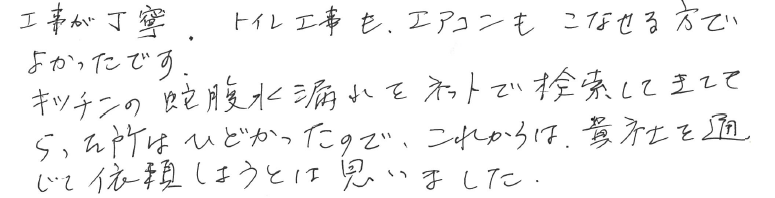 工事が丁寧。トイレ工事も、エアコンも こなせる方で
よかったです。
キッチンの 蛇腹水漏れを ネットで検索してきても
らった所はひどかったので、これからは、貴社を通
じて依頼しようとは思いました。